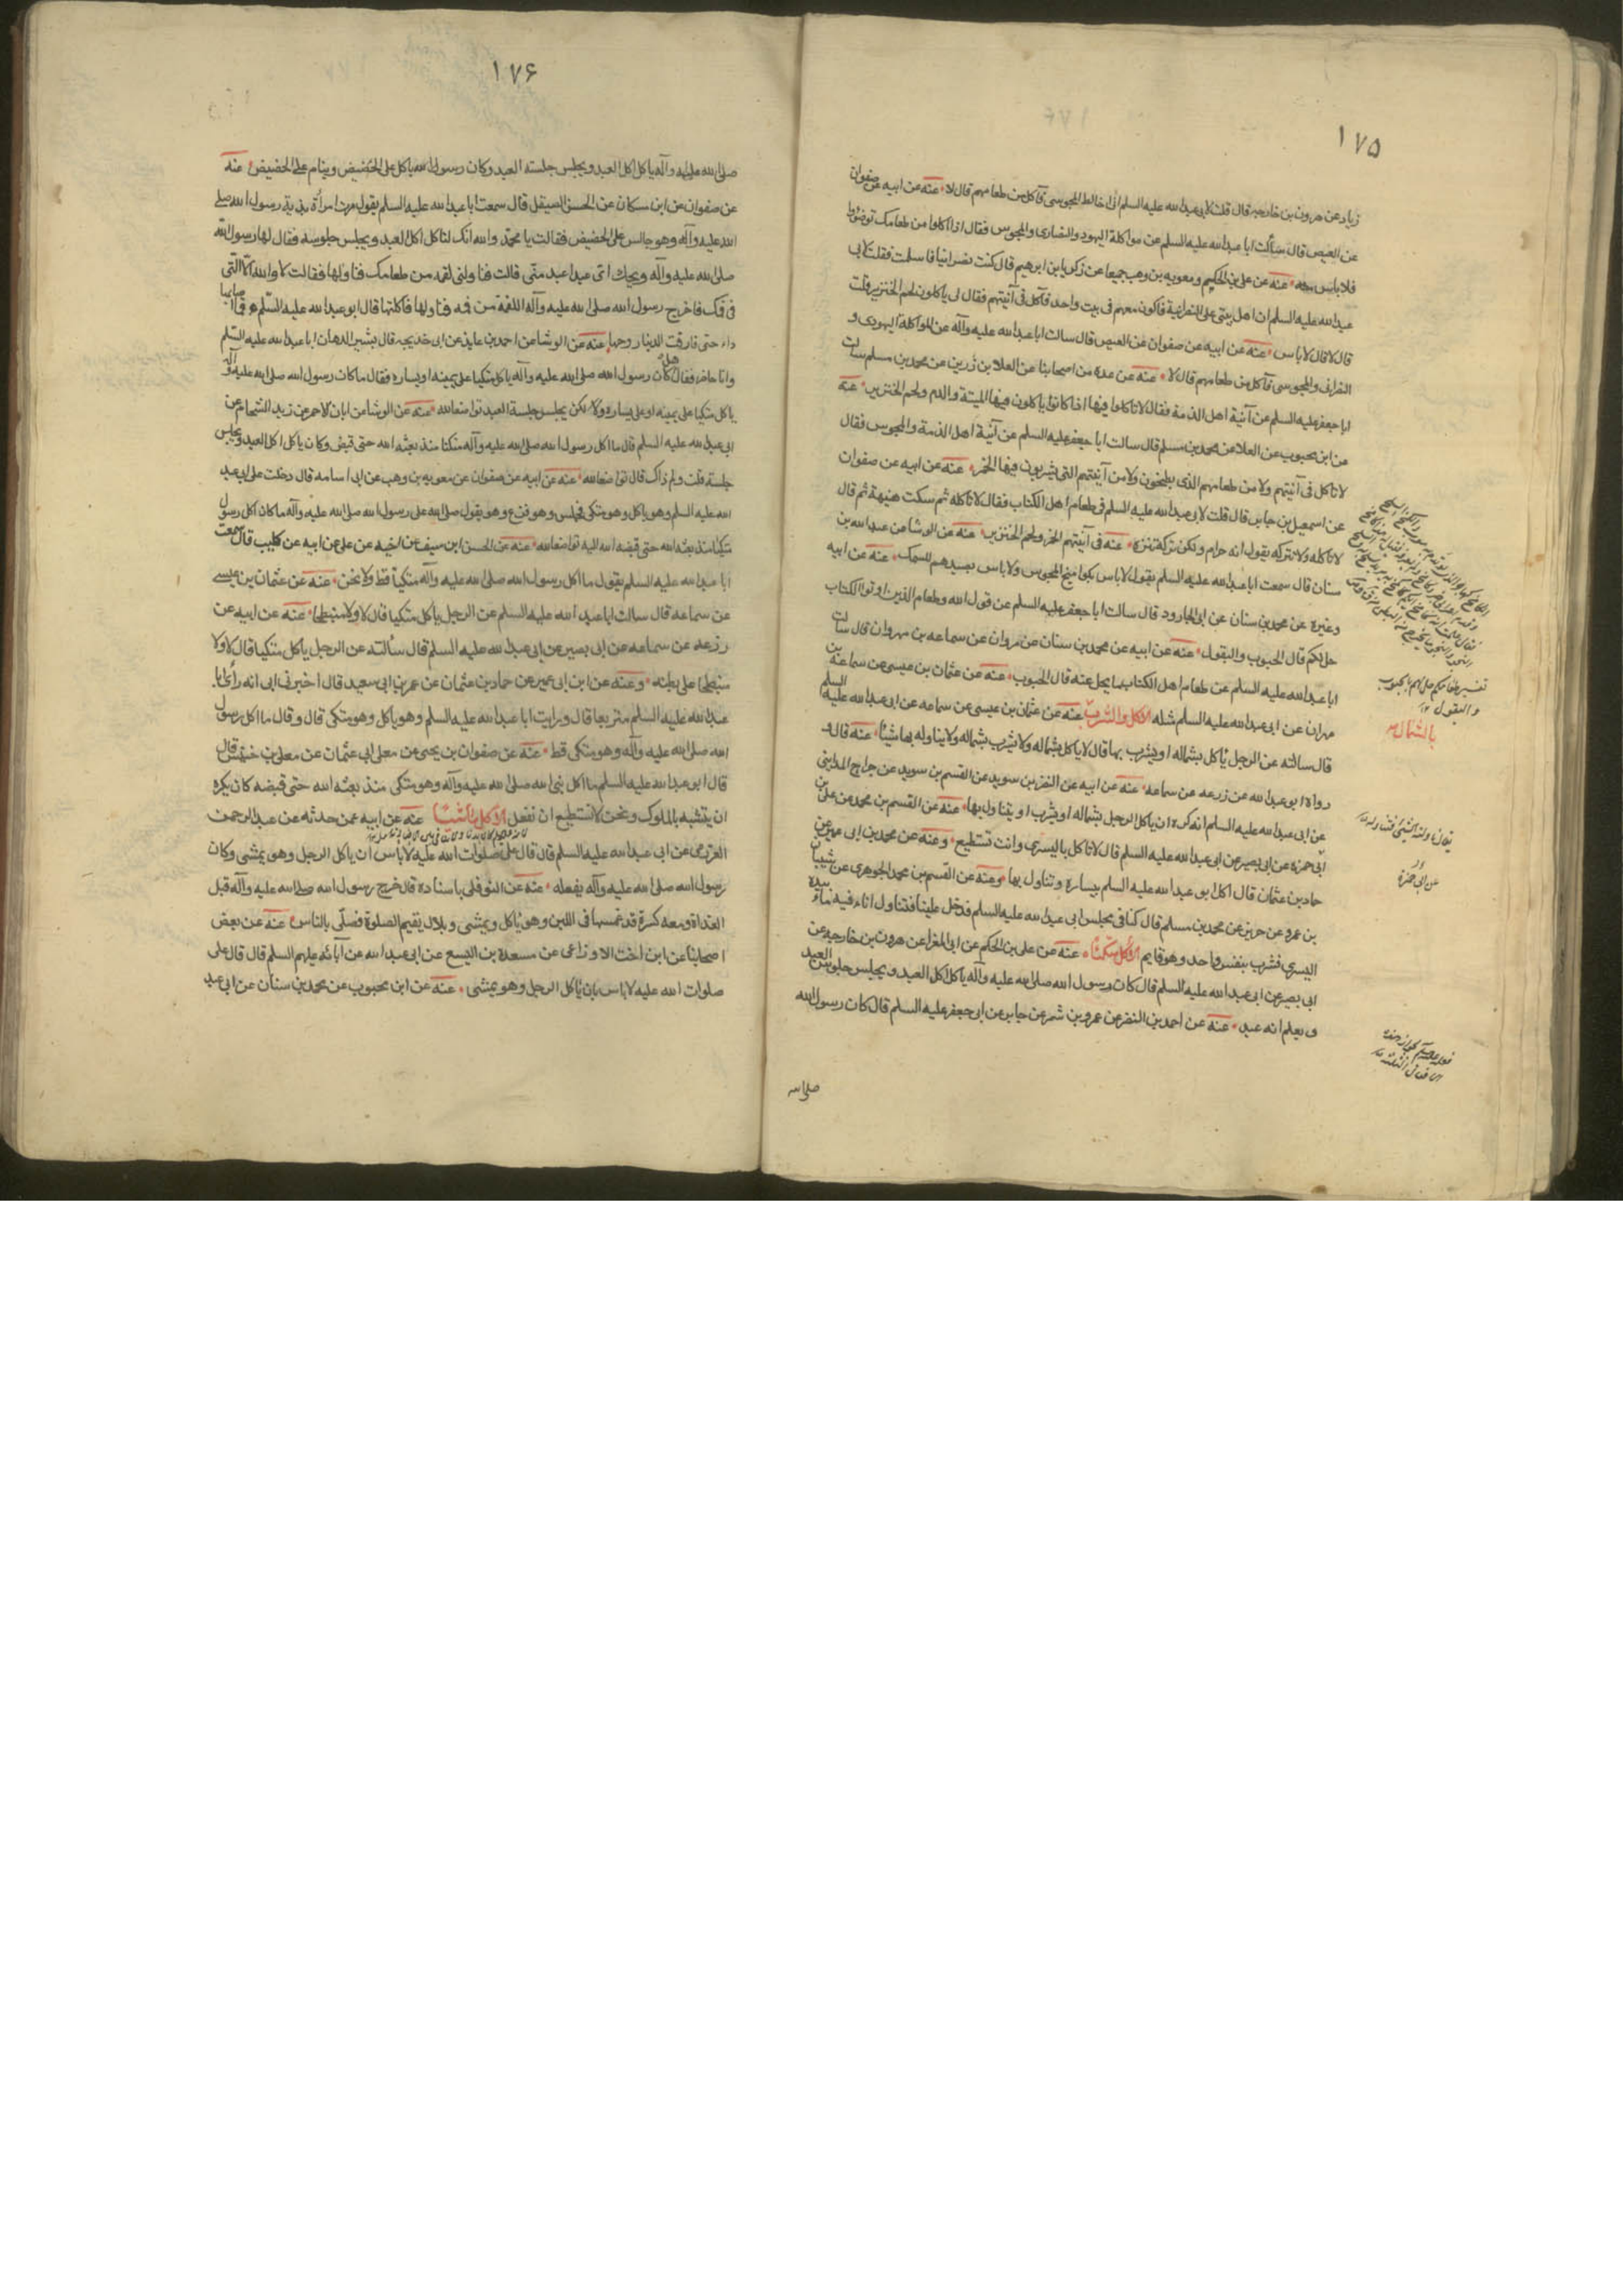 ١٧٥
زياد عن هرون بن خارجه قال قلت لابى عبدالله عليه السلم انى اخالط المجوسى فآكل من طعامهم قال لا عنه عن ابيه عن صفوان
عن العيص قال سألت ابا عبدالله عليه السلم عن مواكلة اليهود والنصارى والمجوس فقال اذا اكلوا من طعامك توضؤا
فلا باس به عنه عن على بن الحكم ومعويه بن وهب جميعا عن زكريا بن ابرهيم قال كنت نصرانيا فاسلمت فقلت لابى
عبدالله عليه السلم ان اهل بيتى على النصرانية فاكون معهم فى بيت واحد فآكل فى آنيتهم فقال لى ياكلون لحم الخنزير قلت
قال لا قال لا باس عنه عن ابيه عن صفوان عن العيص قال سالت ابا عبدالله عليه وآله عن المواكلة اليهودى و
النصرانى والمجوسى فآكل من طعامهم قال لا عنه عن عدة من اصحابنا عن العلا بن زرين عن محمد بن مسلم سالت
ابا جعفر عليه السلم عن آنية اهل الذمة فقال لا تاكلوا فيها اذا كانوا ياكلون فيها الميتة والدم ولحم الخنزير عنه
عن ابن محبوب عن العلا عن محمد بن مسلم قال سالت ابا جعفر عليه السلم عن آنية اهل الذمة والمجوس فقال
لا تاكل فى آنيتهم ولا من طعامهم الذى يطبخون ولا من آنيتهم التى يشربون فيها الخمر عنه عن ابيه عن صفوان
عن اسمعيل بن جابر قال قلت لابى عبدالله عليه السلم فى طعام اهل الكتاب فقال لا تاكله ثم سكت هنيهة ثم قال
لا تاكله ولا تتركه يقول انه حرام ولكن تركه تنزها عنه فى آنيتهم الخمر ولحم الخنزير عنه عن الوشا عن عبدالله بن
سنان قال سمعت ابا عبدالله عليه السلم يقول لا باس بكوامخ المجوس ولا باس بصيدهم للسمك عنه عن ابيه
وغيره عن محمد بن سنان عن ابى الجارود قال سالت ابا جعفر عليه السلم عن قول الله وطعام الذين اوتوا الكتاب
حل لكم قال الحبوب والبقول عنه عن ابيه عن محمد بن سنان عن مروان عن سماعه بن مهروان قال سالت
ابا عبدالله عليه السلم عن طعام اهل الكتاب ما يحل عنه قال الحبوب عنه عن عثمان بن عيسى عن سماعة بن
مهران عن ابى عبدالله عليه السلم مثله الاكل والشرب عنه عن عثمان بن عيسى عن سماعه عن ابى عبدالله عليه السلم
بالشمال
قال سالته عن الرجل ياكل بشماله او يشرب بها قال لا ياكل بشماله ولا يشرب بشماله ولا يناوله بها شيئا عنه قال و
رواه ابو عبدالله عن زرعه عن سماعه عنه عن ابيه عن النضر بن سويد عن القسم بن سويد عن جراح المداينى
عن ابى عبدالله عليه السلم انه كره ان ياكل الرجل بشماله او يشرب او يتناول بها عنه عن القسم بن محمد عن على بن
ابى حمزه عن ابى بصير عن ابى عبدالله عليه السلم قال لا تاكل باليسرى وانت تستطيع وعنه عن محمد بن ابى عمير عن
حماد بن عثمان قال اكل ابو عبدالله عليه السلم بيساره وتناول بها وعنه عن القسم بن محمد الجوهرى عن شيبان
بن عمرو عن حريز عن محمد بن مسلم قال كنا فى مجلس ابى عبدالله عليه السلم فدخل علينا فتناول اناء فيه ماء بيده
اليسرى فشرب بنفس واحد وهو قايم الاكل متكئا عنه عن على بن الحكم عن ابى المغرا عن هرون بن خارجه عن
ابى بصير عن ابى عبدالله عليه السلم قال كان رسول الله صلى الله عليه وآله ياكل اكل العبد ويجلس جلوس العبد
و يعلم انه عبد عنه عن احمد بن النضر عن عمرو بن شمر عن جابر عن ابى جعفر عليه السلم قال كان رسول الله
صلى الله
تفسير طعامكم حل لهم بالحبوب
والبقول
عن ابى حمزة
١٧۶
صلى الله عليه وآله ياكل اكل العبد ويجلس جلسة العبد وكان رسول الله ياكل على الحضيض وينام على الحضيض عنه
عن صفوان عن ابن مسكان عن الحسن الصيقل قال سمعت ابا عبدالله عليه السلم يقول مرت امرأة بذية برسول الله صلى
الله عليه وآله وهو جالس على الحضيض فقالت يا محمد والله انك لتاكل اكل العبد ويجلس جلوسه فقال لها رسول الله
صلى الله عليه وآله ويحك اى عبد اعبد منى قالت فناولنى لقمه من طعامك فناولها فقالت لا والله الا التى
فى فمك فاخرج رسول الله صلى الله عليه وآله اللقمة من فمه فناولها فاكلتها قال ابو عبدالله عليه السلم فما اصابها
داء حتى فارقت الدنيا روحها عنه عن الوشا عن احمد بن عايذ عن ابى خديجه قال بشير الدهان ابا عبدالله عليه السلم
وانا حاضر فقال هل كان رسول الله صلى الله عليه وآله ياكل متكيا على يمينه او يساره فقال ما كان رسول الله صلى الله عليه وآله
ياكل متكيا على يمينه او على يساره ولا لكن يجلس جلسة العبد تواضعا لله عنه عن الوشا عن ابان الاحمر عن زيد الشحام عن
ابى عبدالله عليه السلم قال ما اكل رسول الله صلى الله عليه وآله متكئا منذ بعثه الله حتى قبض وكان ياكل اكل العبد ويجلس
جلسته قلت ولم ذاك قال تواضعا لله عنه عن ابيه عن صفوان عن معويه بن وهب عن ابى اسامه قال دخلت على ابى عبد
الله عليه السلم وهو ياكل وهو متكى فجلس وهو فزع وهو يقول صلى الله على رسول الله صلى الله عليه وآله ما كان اكل رسول
متكيا منذ بعثه الله حتى قبضه الله اليه تواضعا لله عنه عن الحسن ابن سيف عن اخيه عن على عن ابيه عن كليب قال سمعت
ابا عبدالله عليه السلم يقول ما اكل رسول الله صلى الله عليه وآله متكيا قط ولا نحن عنه عن عثمان بن عيسى
عن سماعه قال سالت ابا عبدالله عليه السلم عن الرجل ياكل متكيا قال لا ولا منبطحا عنه عن ابيه عن
زرعه عن سماعه عن ابى بصير عن ابى عبدالله عليه السلم قال سألته عن الرجل ياكل متكيا قال لا ولا
منبطحا على بطنه وعنه عن ابن ابى عمير عن حماد بن عثمان عن عمر بن ابى سعيد قال اخبرنى ابى انه راى ابا
عبدالله عليه السلم متربعا قال ورايت ابا عبدالله عليه السلم وهو ياكل وهو متكى قال وقال ما اكل رسول
الله صلى الله عليه وآله وهو متكى قط عنه عن صفوان بن يحيى عن معلى ابى عثمان عن معلى بن خنيس قال
قال ابو عبدالله عليه السلم ما اكل نبى الله صلى الله عليه وآله وهو متكى منذ بعثه الله حتى قبضه كان يكره
ان يتشبه بالملوك ونحن لا نستطيع ان نفعل الاكل ماشيا عنه عن ابيه عمن حدثه عن عبدالرحمن
العزرمى عن ابى عبدالله عليه السلم قال قال على صلوات الله عليه لا باس ان ياكل الرجل وهو يمشى وكان
رسول الله صلى الله عليه وآله يفعله عنه عن النوفلى باسناده قال خرج رسول الله صلى الله عليه وآله قبل
الغداة ومعه كسرة قد غمسها فى اللبن وهو ياكل ويمشى وبلال يقيم الصلوة فصلى بالناس عنه عن بعض
اصحابنا عن ابن اخت الاوزاعى عن مسعدة بن اليسع عن ابى عبدالله عن آبائه عليهم السلم قال قال على
صلوات الله عليه لا باس بان ياكل الرجل وهو يمشى عنه عن ابن محبوب عن محمد بن سنان عن ابى عبد